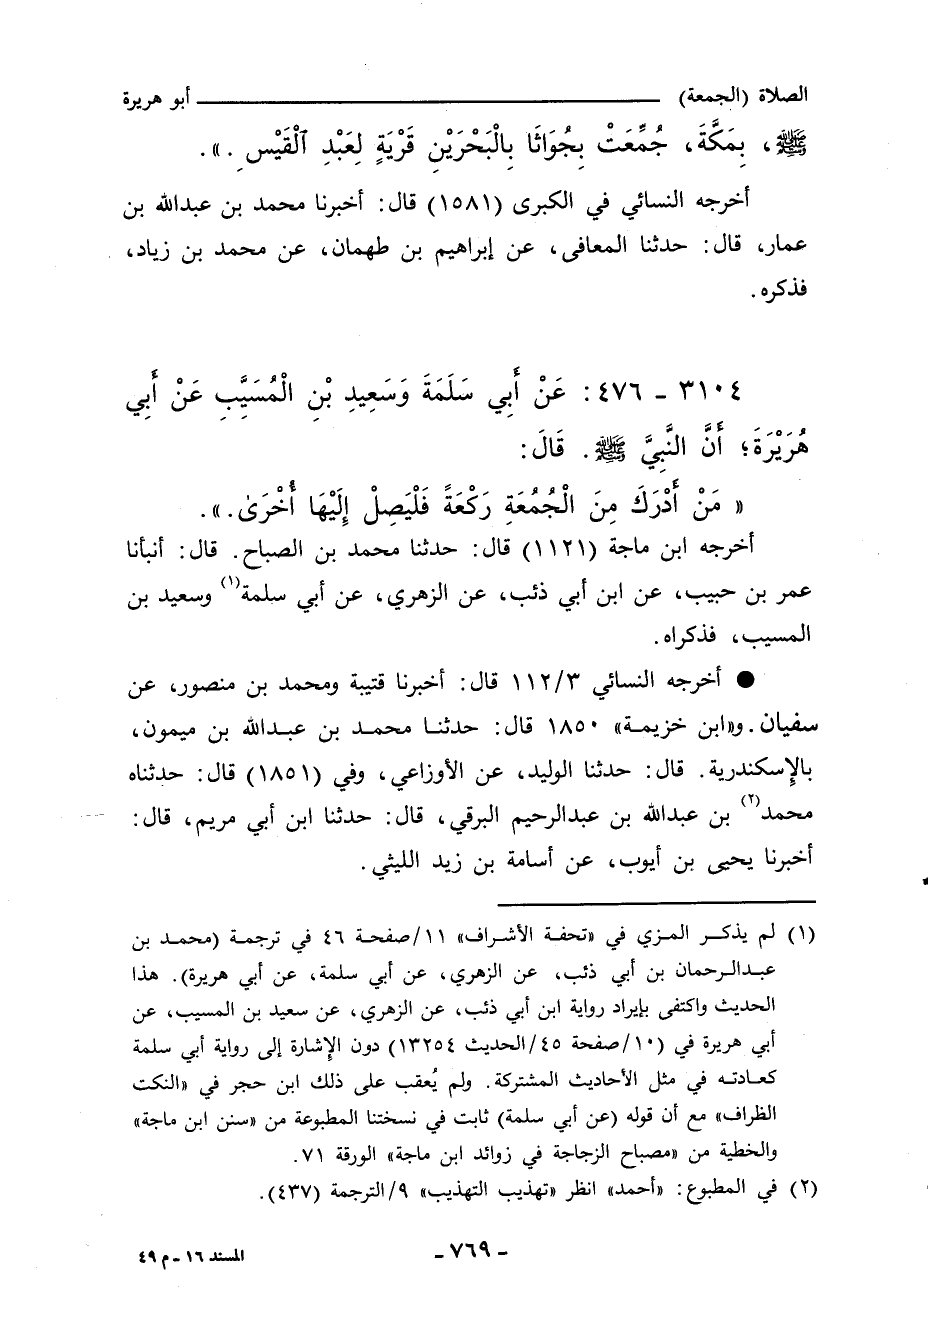 الصلاة (الجمعة) ــــــــــ أبو هريرة
ﷺ، بِمَكَّةَ، جُمِّعَتْ بِجُوَاثَا بِالْبَحْرَيْنِ قَرْيَةٍ لِعَبْدِ ٱلْقَيْسِ .».
أخرجه النسائي في الكبرى (١٥٨١) قال: أخبرنا محمد بن عبدالله بن
عمار، قال: حدثنا المعافى، عن إبراهيم بن طهمان، عن محمد بن زياد،
فذكره.
٣١٠٤ - ٤٧٦: عَنْ أَبِي سَلَمَةَ وَسَعِيدِ بْنِ الْمُسَيَّبِ عَنْ أَبِي
هُرَيْرَةَ؛ أَنَّ النَّبِيَّ ﷺ. قَالَ:
« مَنْ أَدْرَكَ مِنَ الْجُمُعَةِ رَكْعَةً فَلْيَصِلْ إِلَيْهَا أُخْرَىٰ.».
أخرجه ابن ماجة (١١٢١) قال: حدثنا محمد بن الصباح. قال: أنبأنا
عمر بن حبيب، عن ابن أبي ذئب، عن الزهري، عن أبي سلمة(١) وسعيد بن
المسيب، فذكراه.
● أخرجه النسائي ١١٢/٣ قال: أخبرنا قتيبة ومحمد بن منصور، عن
سفيان. و«ابن خزيمة» ١٨٥٠ قال: حدثنا محمد بن عبدالله بن ميمون،
بالإسكندرية. قال: حدثنا الوليد، عن الأوزاعي، وفي (١٨٥١) قال: حدثناه
محمد(٢) بن عبدالله بن عبدالرحيم البرقي، قال: حدثنا ابن أبي مريم، قال:
أخبرنا يحيى بن أيوب، عن أسامة بن زيد الليثي.
(١) لم يذكر المزي في «تحفة الأشراف» ١١/صفحة ٤٦ في ترجمة (محمد بن
عبدالرحمان بن أبي ذئب، عن الزهري، عن أبي سلمة، عن أبي هريرة). هذا
الحديث واكتفى بإيراد رواية ابن أبي ذئب، عن الزهري، عن سعيد بن المسيب، عن
أبي هريرة في (١٠/صفحة ٤٥/الحديث ١٣٢٥٤) دون الإشارة إلى رواية أبي سلمة
كعادته في مثل الأحاديث المشتركة. ولم يُعقب على ذلك ابن حجر في «النكت
الظراف» مع أن قوله (عن أبي سلمة) ثابت في نسختنا المطبوعة من «سنن ابن ماجة»
والخطية من «مصباح الزجاجة في زوائد ابن ماجة» الورقة ٧١.
(٢) في المطبوع: «أحمد» انظر «تهذيب التهذيب» ٩/الترجمة (٤٣٧).
- ٧٦٩ -
المسند ١٦ - م ٤٩